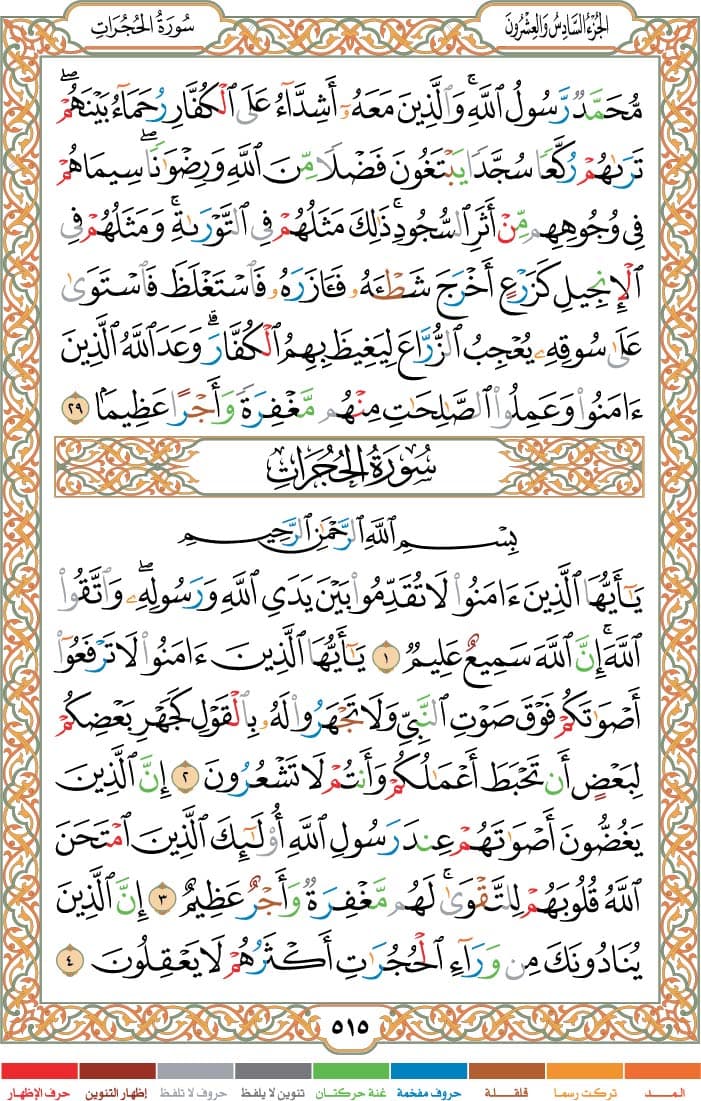 الجُزْءُ السَّادِسُ وَالعِشْرُونَ
سُورَةُ الحُجُرَاتِ
مُّحَمَّدٌ رَّسُولُ ٱللَّهِۚ وَٱلَّذِينَ مَعَهُۥٓ أَشِدَّآءُ عَلَى ٱلۡكُفَّارِ رُحَمَآءُ بَيۡنَهُمۡۖ
تَرَىٰهُمۡ رُكَّعٗا سُجَّدٗا يَبۡتَغُونَ فَضۡلٗا مِّنَ ٱللَّهِ وَرِضۡوَٰنٗاۖ سِيمَاهُمۡ
فِي وُجُوهِهِم مِّنۡ أَثَرِ ٱلسُّجُودِۚ ذَٰلِكَ مَثَلُهُمۡ فِي ٱلتَّوۡرَىٰةِۚ وَمَثَلُهُمۡ فِي
ٱلۡإِنجِيلِ كَزَرۡعٍ أَخۡرَجَ شَطۡـَٔهُۥ فَـَٔازَرَهُۥ فَٱسۡتَغۡلَظَ فَٱسۡتَوَىٰ
عَلَىٰ سُوقِهِۦ يُعۡجِبُ ٱلزُّرَّاعَ لِيَغِيظَ بِهِمُ ٱلۡكُفَّارَۗ وَعَدَ ٱللَّهُ ٱلَّذِينَ
ءَامَنُواْ وَعَمِلُواْ ٱلصَّٰلِحَٰتِ مِنۡهُم مَّغۡفِرَةٗ وَأَجۡرًا عَظِيمَۢا ٢٩
سُورَةُ الحُجُرَاتِ
بِسۡمِ ٱللَّهِ ٱلرَّحۡمَٰنِ ٱلرَّحِيمِ
يَٰٓأَيُّهَا ٱلَّذِينَ ءَامَنُواْ لَا تُقَدِّمُواْ بَيۡنَ يَدَيِ ٱللَّهِ وَرَسُولِهِۦۖ وَٱتَّقُواْ
ٱللَّهَۚ إِنَّ ٱللَّهَ سَمِيعٌ عَلِيمٞ ١ يَٰٓأَيُّهَا ٱلَّذِينَ ءَامَنُواْ لَا تَرۡفَعُوٓاْ
أَصۡوَٰتَكُمۡ فَوۡقَ صَوۡتِ ٱلنَّبِيِّ وَلَا تَجۡهَرُواْ لَهُۥ بِٱلۡقَوۡلِ كَجَهۡرِ بَعۡضِكُمۡ
لِبَعۡضٍ أَن تَحۡبَطَ أَعۡمَٰلُكُمۡ وَأَنتُمۡ لَا تَشۡعُرُونَ ٢ إِنَّ ٱلَّذِينَ
يَغُضُّونَ أَصۡوَٰتَهُمۡ عِندَ رَسُولِ ٱللَّهِ أُوْلَٰٓئِكَ ٱلَّذِينَ ٱمۡتَحَنَ
ٱللَّهُ قُلُوبَهُمۡ لِلتَّقۡوَىٰۚ لَهُم مَّغۡفِرَةٞ وَأَجۡرٌ عَظِيمٌ ٣ إِنَّ ٱلَّذِينَ
يُنَادُونَكَ مِن وَرَآءِ ٱلۡحُجُرَٰتِ أَكۡثَرُهُمۡ لَا يَعۡقِلُونَ ٤
٥١٥
المـــد تركت رسما قلقـــلة حروف مفخمة غنة حركتـان تنوين لا يلفظ حروف لا تلفظ إظهار التنوين حرف الإظهار